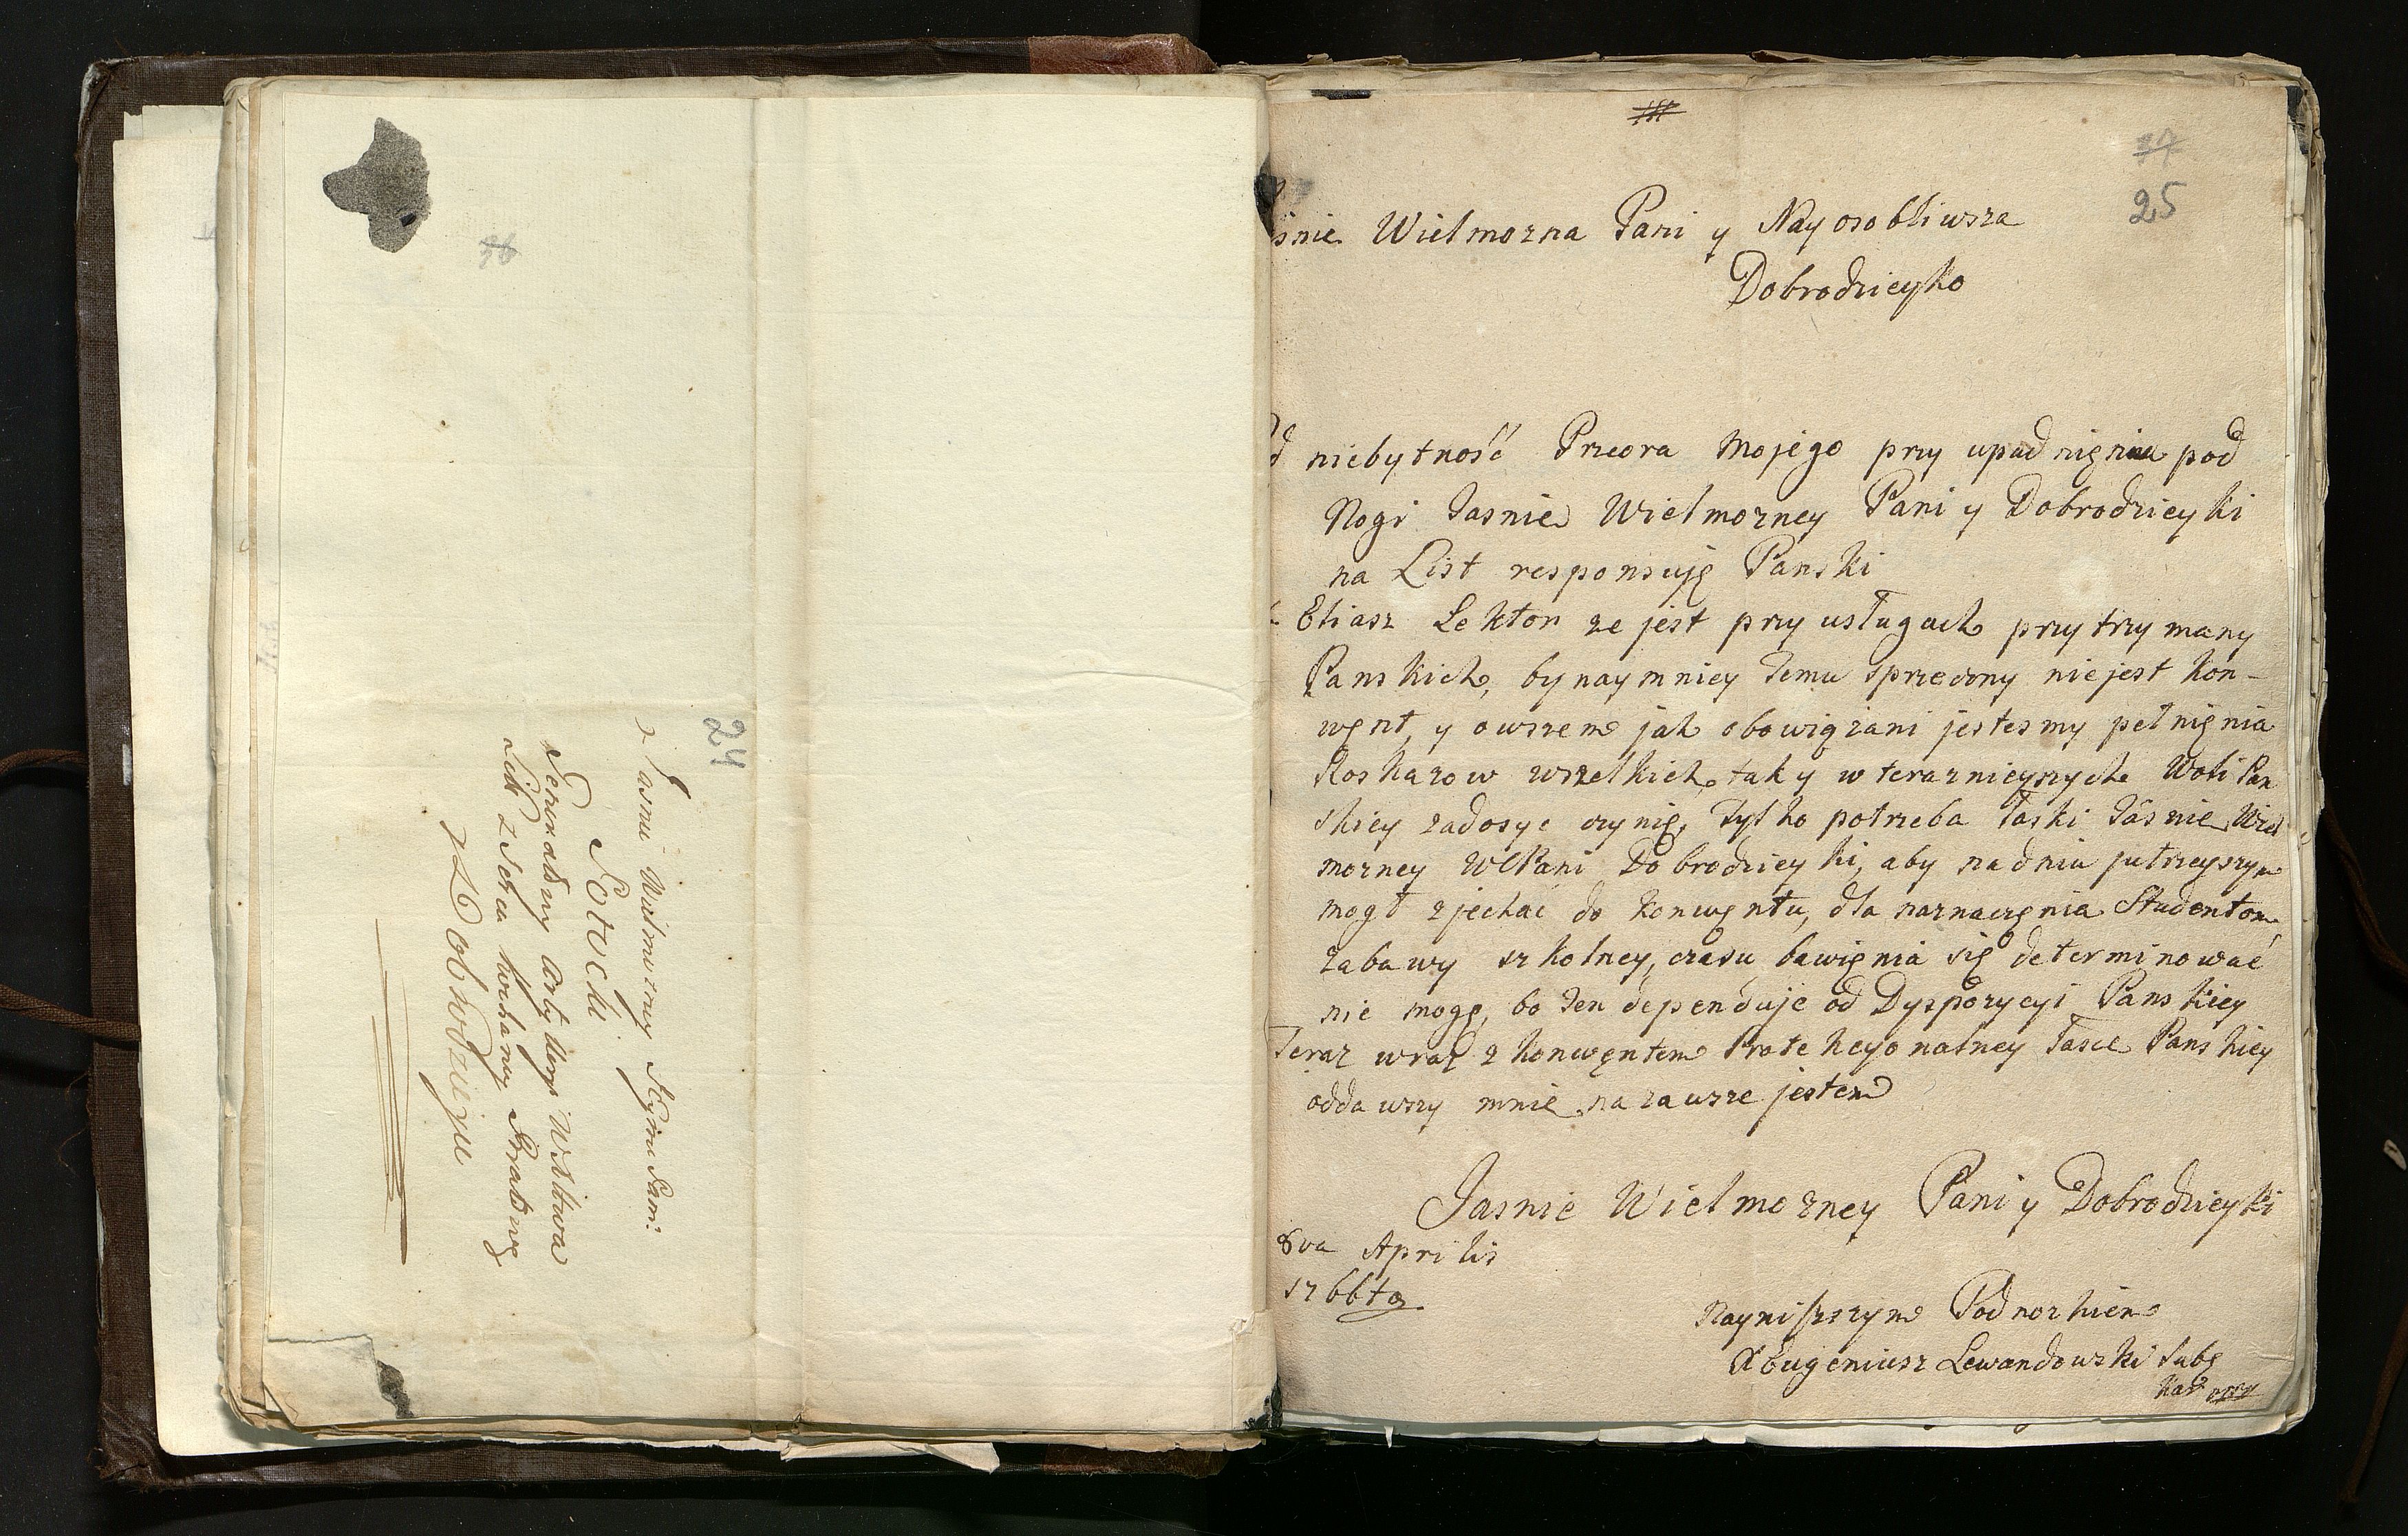 36
24
Jasnie Wielmożny Mgci Pani
Sołucki
Generalny Artyleryi WXLitwa
z Dobrodzieju
37
25
śnie Wielmozna Pani y Nayosobliwsza
Dobrodzieyko
niebytność Przeora Mojego przy upadnięniu pod
Nogi Jasnie Wielmozney Pani y Dobrodzieyki
na List responsuję Panski
Eliasz Lektor ze jest przy usługach przytrzymany
Panskich, bynaymniey temu sprzeczny niejest kon-
węnt, y owszem jak obowiązani jestesmy pełnięnia
Roskazow wszelkich, tak y w teraznieyszych Woli Pan
skiey zadosyc czynię, Tylko potrzeba łaski Jásnie Wiel
mozney WMPani Dobrodzieyki, aby na dniu jutrzeyszym
mogł zjechać do Konwęntu, dla naznaczęnia Studentom
zabawy szkolney, czasu bawięnia się determinować
nie mogę, bo ten dependuje od Dyspozycyi Panskiey
Teraz wraz z konwęntem Protekcyonalney łasce Panskiey
oddawszy mnie na zawsze jestem
Jasnie Wielmozney Pani y Dobrodzieyki
8va Aprilis
Nayniszszym Podnozkiem
X Eugeniusz Lewandowski Sub